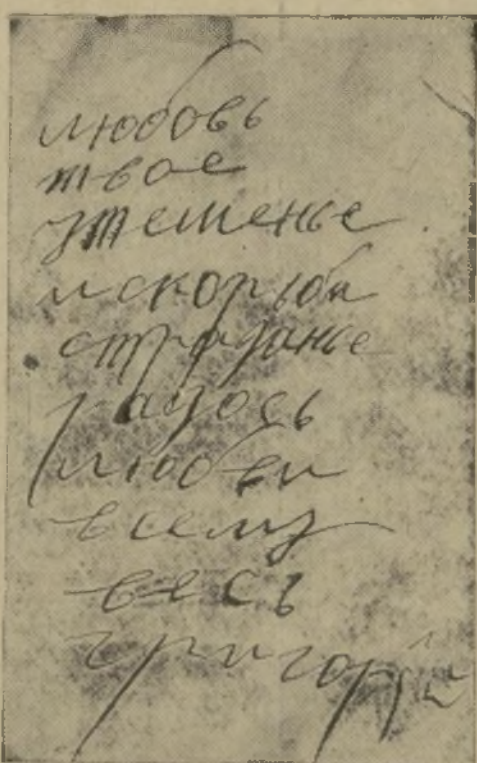 любовь
твое
утешенье
и скорьби
страданье
радось
любви
всему
весь
григорий